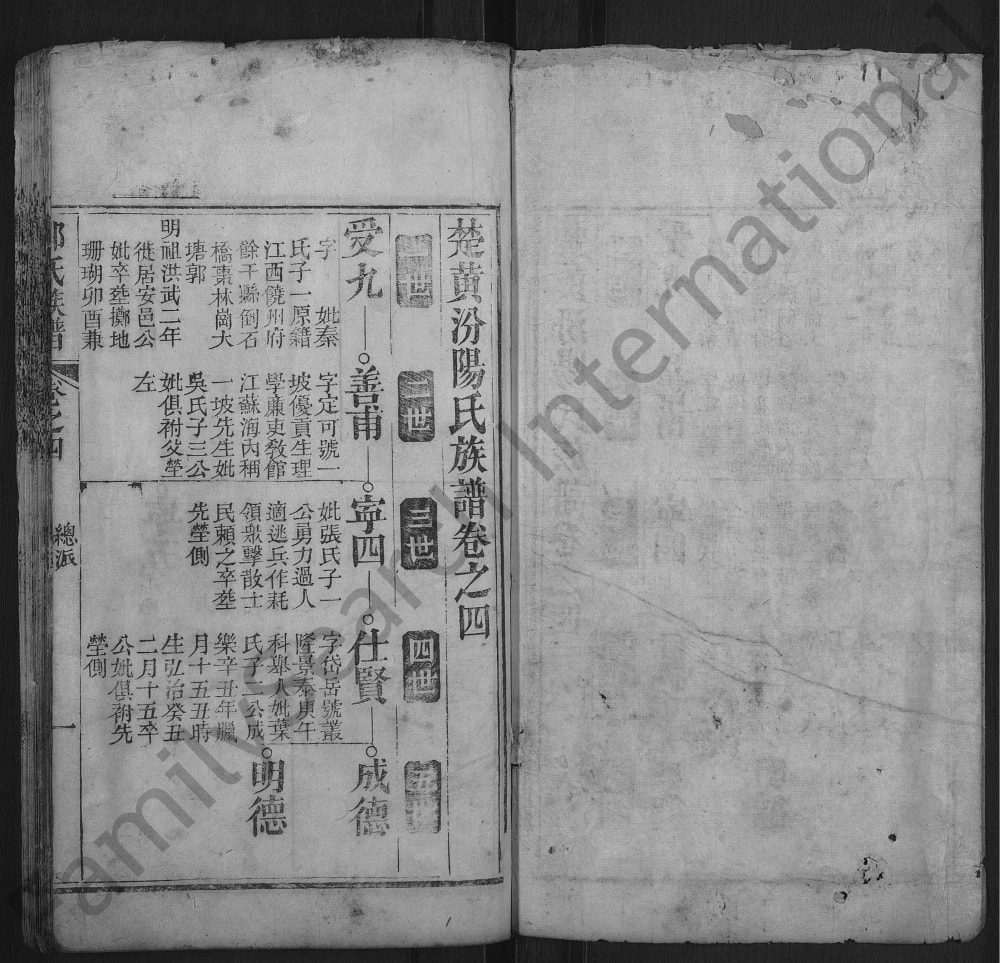 楚黄汾陽氏族譜卷之四
一世
二世
三世
四世
五世
受九
善甫
寕四
仕賢
成德
字 妣秦
氏子一原籍
江西饒州府
餘干縣倒石
橋棗林崗大
塘郭
明祖洪武二年
徙居安邑公
妣卒塟擲地
珊瑚卯酉兼
字定可號一
坡優貢生理
學廉吏敎館
江蘇海內稱
一坡先生妣
吳氏子三公
妣俱祔父塋
左
妣張氏子一
公勇力過人
適逃兵作耗
領衆擊散士
民賴之卒塟
先塋側
字岱岳號叢
隆景泰庚午
科舉人妣葉
氏子二公成
樂辛丑年臘
月十五丑時
生弘治癸丑
二月十五卒
公妣俱祔先
塋側
明德
郭氏族譜
卷之四
總派
一
Family Search International